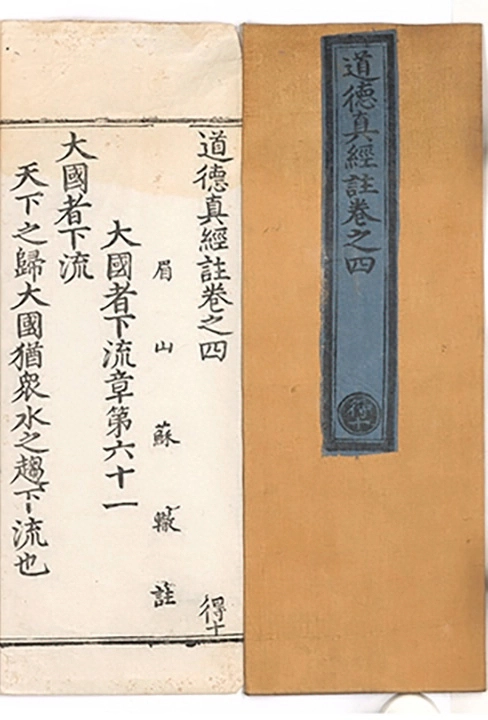 道德真經註卷之四
得十
道德真經註卷之四
得十
眉山蘇轍註
大國者下流章第六十一
大國者下流
天下之歸大國猶衆水之趨下流也